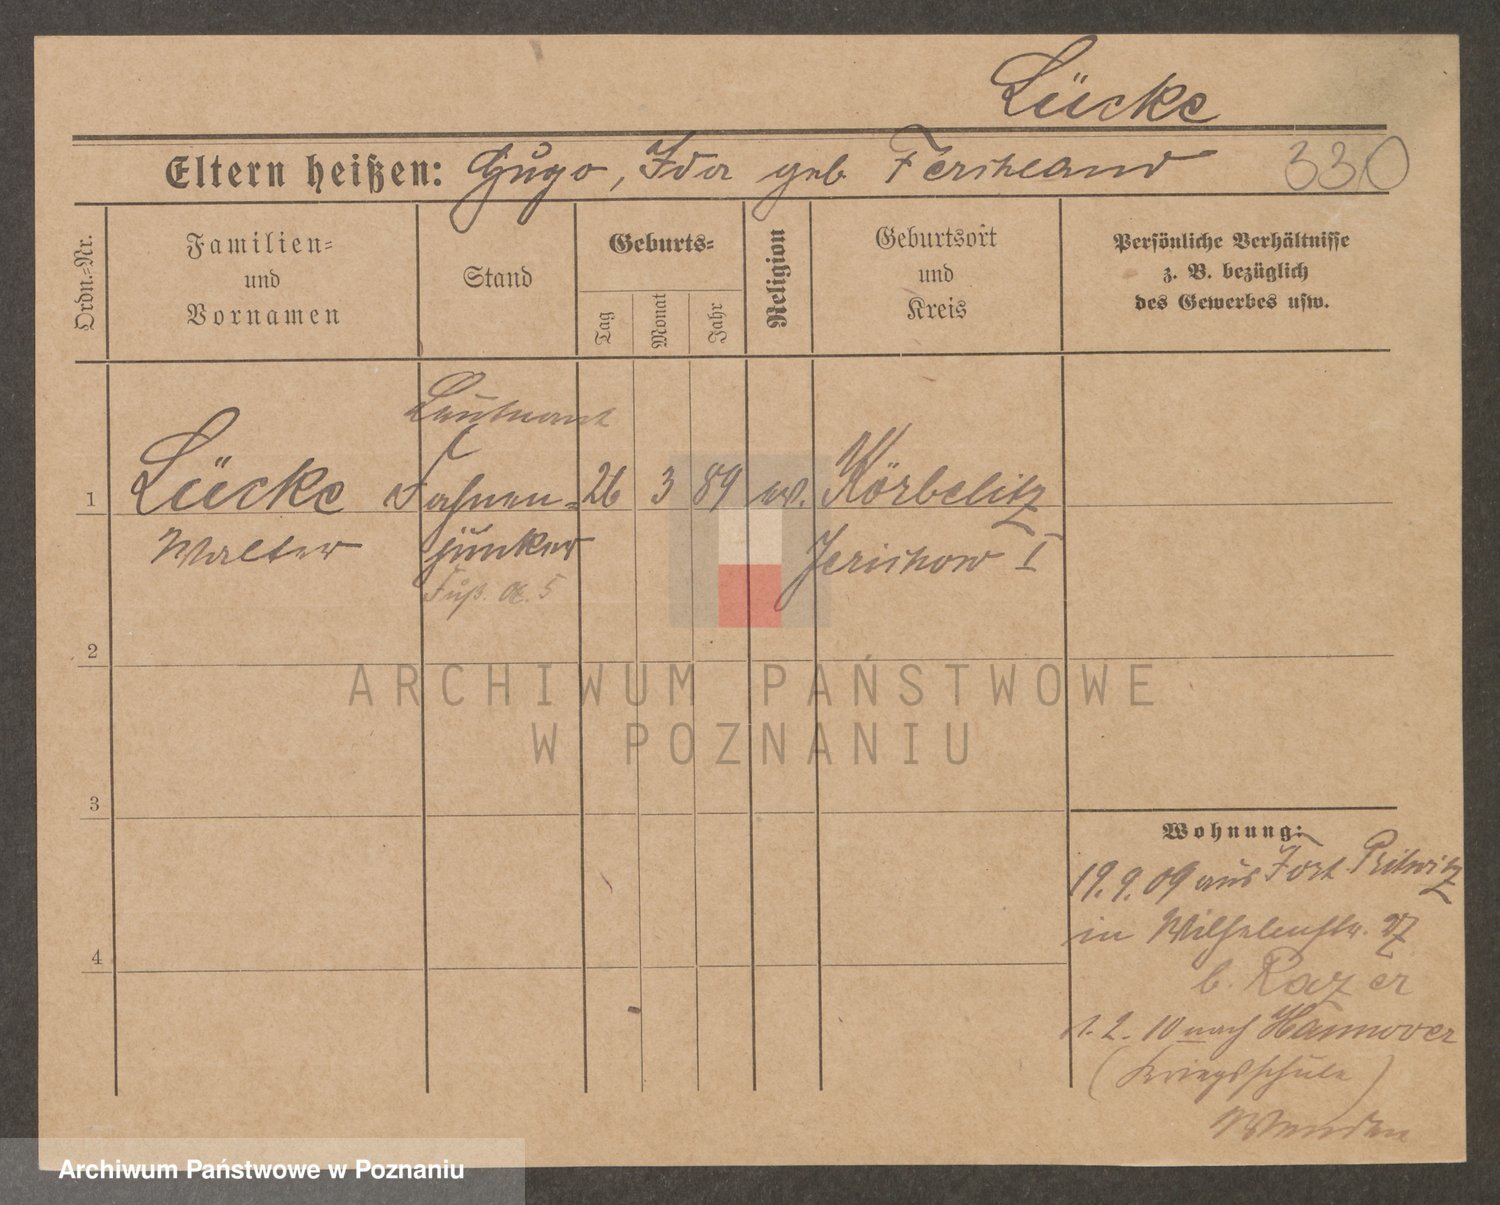 Lücke
Eltern heißen: Hugo, Ida geb. Ferchland
330
Ordn.=Nr.
Familien=
und
Vornamen
Stand
Geburts=
Tag
Monat
Jahr
Religion
Geburtsort
und
Kreis
Persönliche Verhältnisse
z. B. bezüglich
des Gewerbes usw.
Leutnant
1 Lücke Fahnen= 26 3 89 ev. Körbelitz
Walter junker Jerichow I
Fuß. A. 5
2
3
4
Wohnung:
19. 9. 09 aus Fort Pritwitz
in Wilhelmstr. 27
b. Razer
1. 2. 10 nach Hannover
(Kriegsschule)
ARCHIWUM PAŃSTWOWE
W POZNANIU
Archiwum Państwowe w Poznaniu